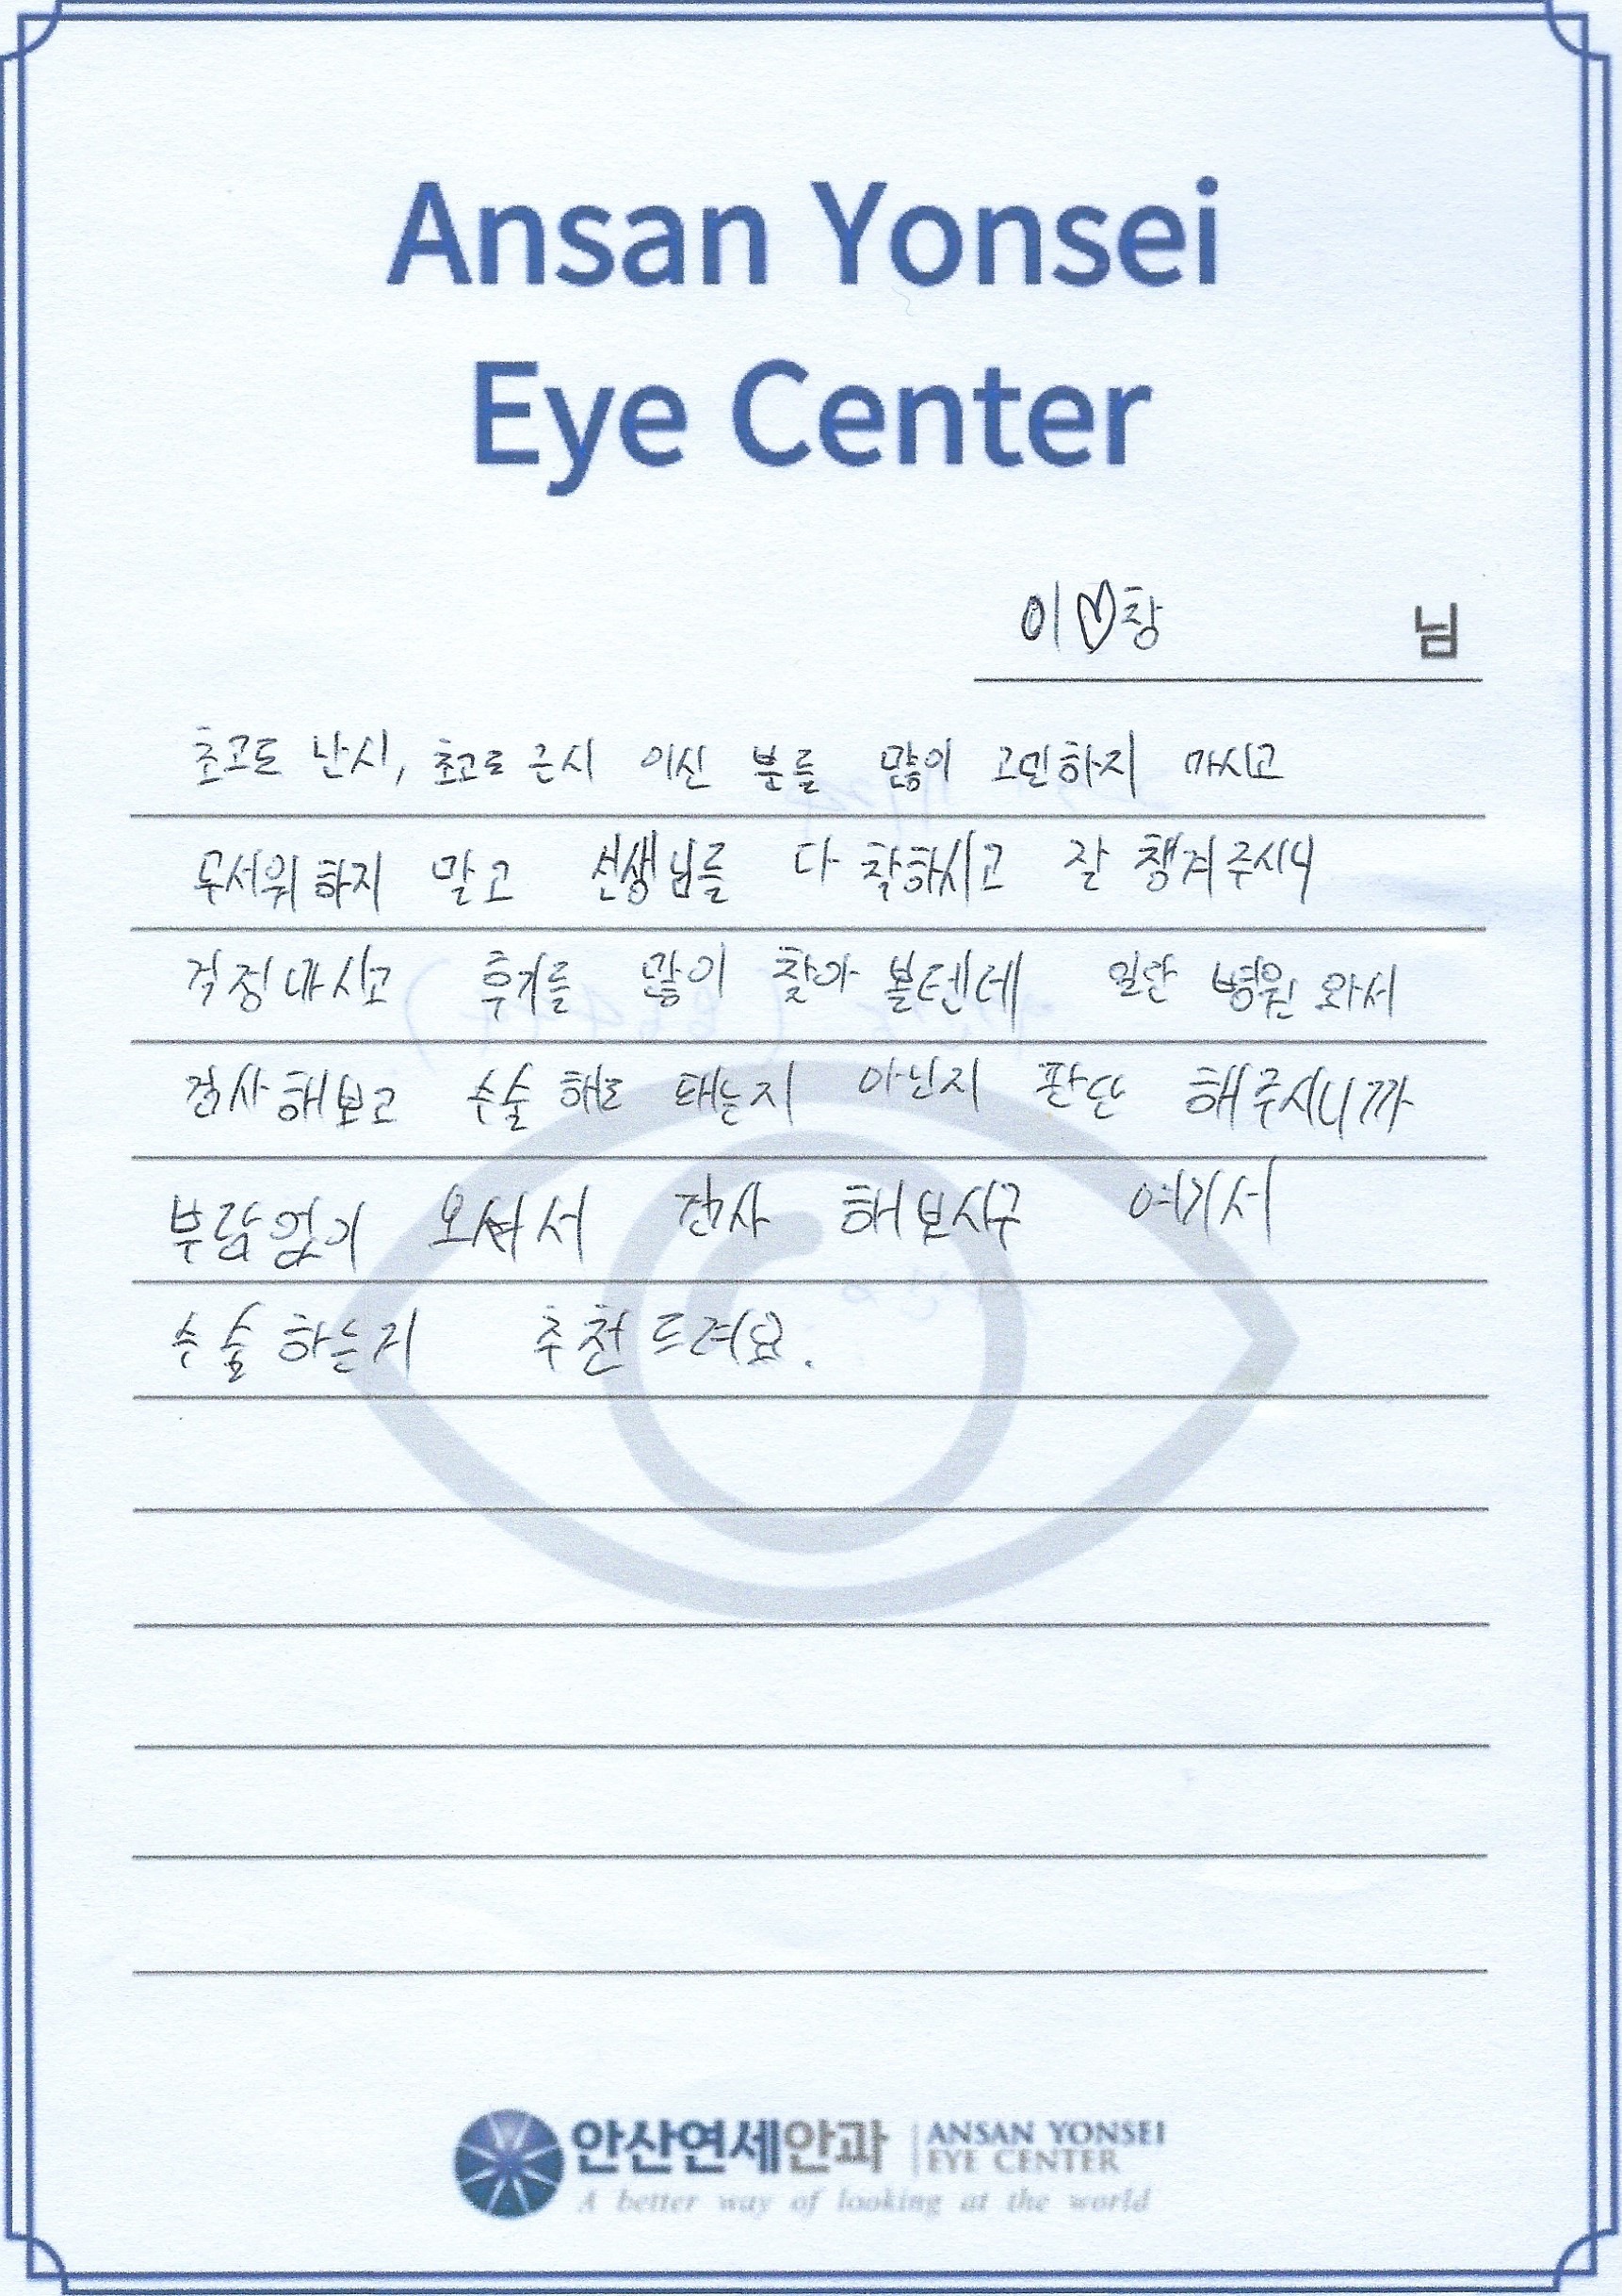 Ansan Yonsei
Eye Center
이♡창 님
초고도 난시, 초고도 근시 이신 분들 많이 고민하지 마시고
무서워하지 말고 선생님들 다 착하시고 잘 챙겨주시니
걱정마시고 후기를 많이 찾아 볼텐데 일단 병원 와서
검사해보고 수술 해도 돼는지 아닌지 판단 해주시니까
부담없이 오셔서 검사 해보시구 여기서
수술하는거 추천드려요.
안산연세안과 ANSAN YONSEI
EYE CENTER
A better way of looking at the world